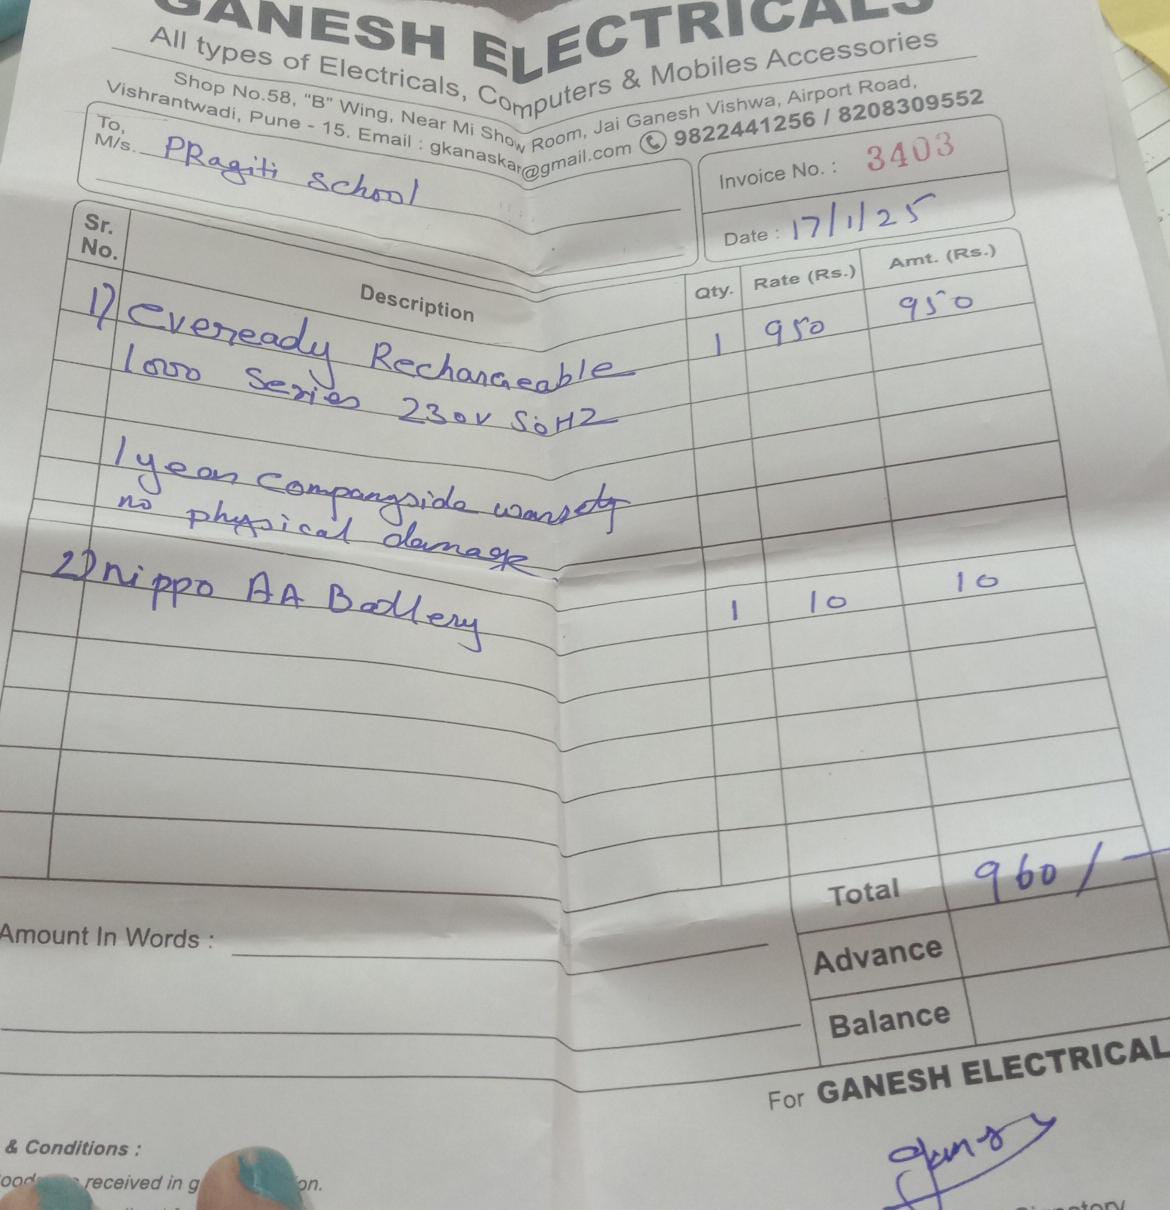 GANESH ELECTRICALS
All types of Electricals, Computers & Mobiles Accessories
Shop No.58, "B" Wing, Near Mi Show Room, Jai Ganesh Vishwa, Airport Road,
Vishrantwadi, Pune - 15. Email : gkanaskar@gmail.com 9822441256 / 8208309552
To,
M/s. PRagiti School
Invoice No. : 3403
Date : 17/1/25
Sr. No. Description Qty. Rate (Rs.) Amt. (Rs.)
1) Eveready Rechargeable 1 950 950
1000 Series 230V 50HZ
1 year Companyside warrety
no physical damage
2) nippo AA Battery 1 10 10
Total 960/-
Amount In Words :
Advance
Balance
For GANESH ELECTRICAL
& Conditions :
received in